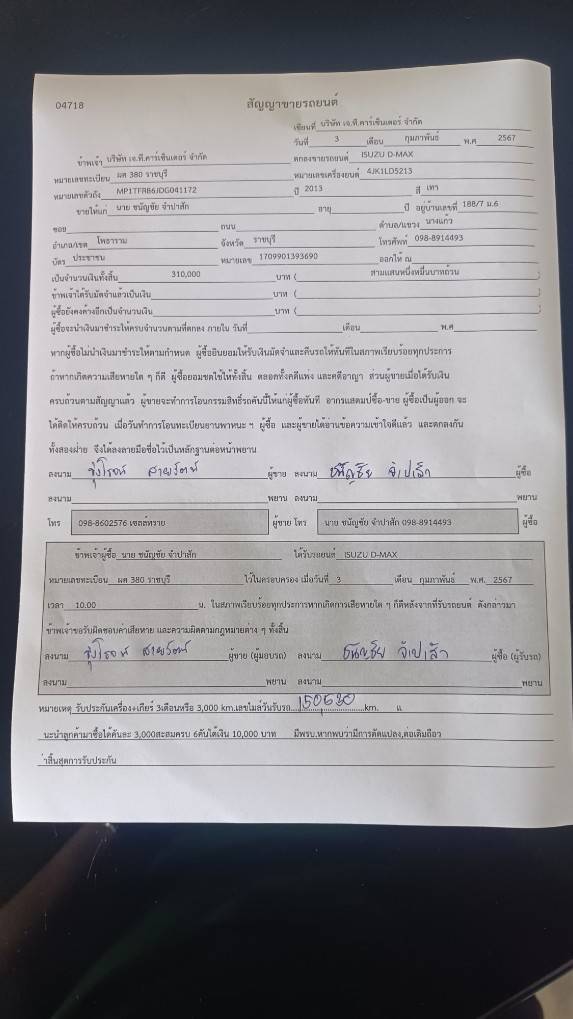 04718
สัญญาขายรถยนต์
เขียนที่ บริษัท เจ.ที.คาร์เซ็นเตอร์ จำกัด
วันที่ 3 เดือน กุมภาพันธ์ พ.ศ 2567
ข้าพเจ้า บริษัท เจ.ที.คาร์เซ็นเตอร์ จำกัด ตกลงขายรถยนต์ ISUZU D-MAX
หมายเลขทะเบียน ผศ 380 ราชบุรี หมายเลขเครื่องยนต์ 4JK1LD5213
หมายเลขตัวถัง MP1TFR86JDG041172 ปี 2013 สี เทา
ขายให้แก่ นาย ชนัญชัย จำปาสัก อายุ ปี อยู่บ้านเลขที่ 188/7 ม.6
ซอย ถนน ตำบล/แขวง นางแก้ว
อำเภอ/เขต โพธาราม จังหวัด ราชบุรี โทรศัพท์ 098-8914493
บัตร ประชาชน หมายเลข 1709901393690 ออกให้ ณ
เป็นจำนวนเงินทั้งสิ้น 310,000 บาท ( สามแสนหนึ่งหมื่นบาทถ้วน )
ข้าพเจ้าได้รับมัดจำแล้วเป็นเงิน บาท ( )
ผู้ซื้อยังคงค้างอีกเป็นจำนวนเงิน บาท ( )
ผู้ซื้อจะนำเงินมาชำระให้ครบจำนวนตามที่ตกลง ภายใน วันที่ เดือน พ.ศ
หากผู้ซื้อไม่นำเงินมาชำระให้ตามกำหนด ผู้ซื้อยินยอมให้รับเงินมัดจำและคืนรถให้ทันทีในสภาพเรียบร้อยทุกประการ
ถ้าหากเกิดความเสียหายใด ๆ ก็ดี ผู้ซื้อยอมชดใช้ให้ทั้งสิ้น ตลอดทั้งคดีแพ่ง และคดีอาญา ส่วนผู้ขายเมื่อได้รับเงิน
ครบถ้วนตามสัญญาแล้ว ผู้ขายจะทำการโอนกรรมสิทธิ์รถคันนี้ให้แก่ผู้ซื้อทันที อากรแสตมป์ซื้อ-ขาย ผู้ซื้อเป็นผู้ออก จะ
ได้ติดให้ครบถ้วน เมื่อวันทำการโอนทะเบียนยานพาหนะ ฯ ผู้ซื้อ และผู้ขายได้อ่านข้อความเข้าใจดีแล้ว และตกลงกัน
ทั้งสองฝ่าย จึงได้ลงลายมือชื่อไว้เป็นหลักฐานต่อหน้าพยาน
ลงนาม ผู้ขาย ลงนาม ชนัญชัย จำปาสัก ผู้ซื้อ
ลงนาม พยาน ลงนาม พยาน
โทร 098-8602576 เซลล์ทราย ผู้ขาย โทร นาย ชนัญชัย จำปาสัก 098-8914493 ผู้ซื้อ
ข้าพเจ้าผู้ซื้อ นาย ชนัญชัย จำปาสัก ได้รับรถยนต์ ISUZU D-MAX
หมายเลขทะเบียน ผศ 380 ราชบุรี ไว้ในครอบครอง เมื่อวันที่ 3 เดือน กุมภาพันธ์ พ.ศ. 2567
เวลา 10.00 น. ในสภาพเรียบร้อยทุกประการหากเกิดการเสียหายใด ๆ ก็ดีหลังจากที่รับรถยนต์ ดังกล่าวมา
ข้าพเจ้าขอรับผิดชอบค่าเสียหาย และความผิดตามกฎหมายต่าง ๆ ทั้งสิ้น
ลงนาม ผู้ขาย (ผู้มอบรถ) ลงนาม ชนัญชัย จำปาสัก ผู้ซื้อ (ผู้รับรถ)
ลงนาม พยาน ลงนาม พยาน
หมายเหตุ รับประกันเครื่อง+เกียร์ 3เดือนหรือ 3,000 km.เลขไมล์วันรับรถ 150630 km. แ
นะนำลูกค้ามาซื้อได้คันละ 3,000สะสมครบ 6คันได้เงิน 10,000 บาท มีพรบ.หากพบว่ามีการดัดแปลง,ต่อเติมถือว
่าสิ้นสุดการรับประกัน